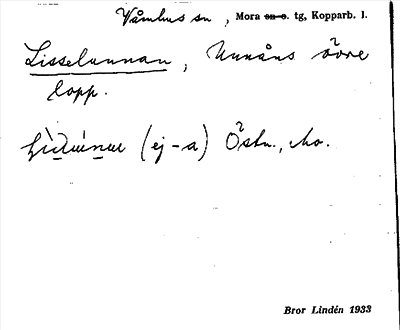 Våmhus sn, Mora sn o. tg, Kopparb. l.
Lisselunnan, Unnåns övre
lopp.
(ej -a) Östn., Mo.
Bror Lindén 1933